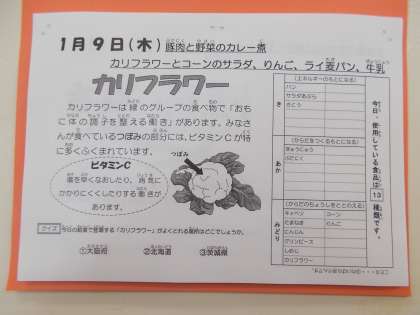 1月9日(木) 豚肉と野菜のカレー煮
カリフラワーとコーンのサラダ、りんご、ライ麦パン、牛乳
カリフラワー
カリフラワーは緑のグループの食べ物で「おも
に体の調子を整える働き」があります。みなさ
んが食べているつぼみの部分には、ビタミンCが特
に多くふくまれています。
ビタミンC
傷を早くなおしたり、病気に
かかりにくくしたりする働きが
あります。
つぼみ
クイズ 今日の給食で登場する「カリフラワー」がよくとれる場所はどこでしょうか。
①大阪府 ②北海道 ③茨城県
今日、使用している食品は13種類です。
き
(エネルギーのもとになる)
パン
サラダあぶら
さとう
あか
(からだをつくるもとになる)
ぎゅうにゅう
ぶたにく
みどり
(からだのちょうしをととのえる)
キャベツ コーン
たまねぎ りんご
にんじん
グリンピース
しめじ
カリフラワー